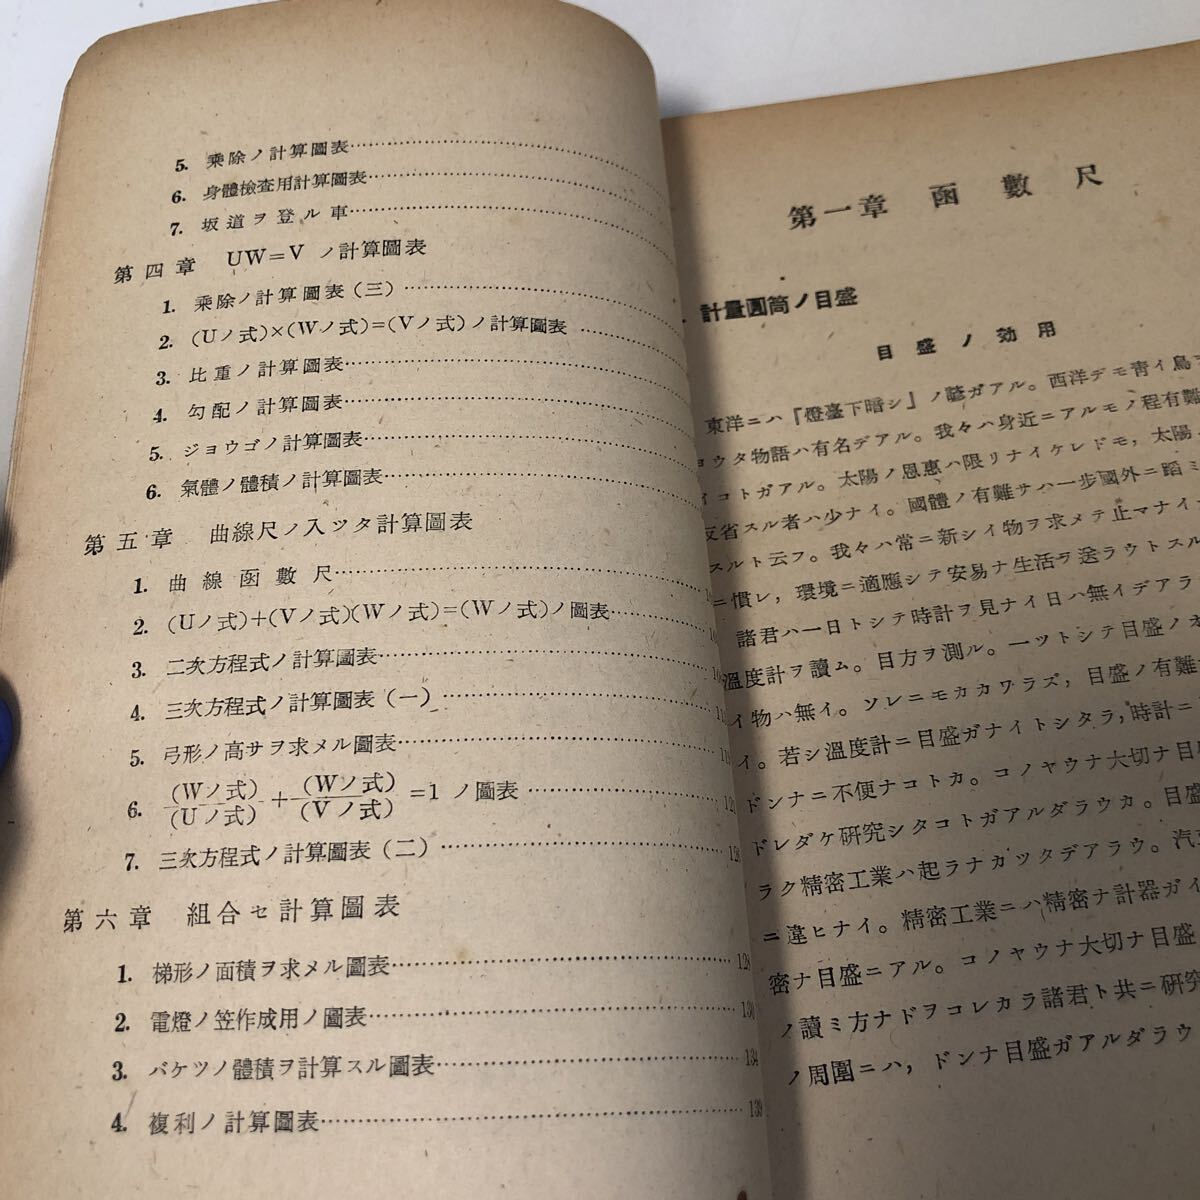 5. 乘除ノ計算圖表
6. 身體檢査用計算圖表
7. 坂道ヲ登ル車
第四章 UW=V ノ計算圖表
1. 乘除ノ計算圖表(三)
2. (Uノ式)×(Wノ式)=(Vノ式)ノ計算圖表
3. 比重ノ計算圖表
4. 勾配ノ計算圖表
5. ジョウゴノ計算圖表
6. 氣體ノ體積ノ計算圖表
第五章 曲線尺ノ入ツタ計算圖表
1. 曲線函數尺
2. (Uノ式)+(Vノ式)(Wノ式)=(Wノ式)ノ圖表
3. 二次方程式ノ計算圖表
4. 三次方程式ノ計算圖表(一)
5. 弓形ノ高サヲ求メル圖表
6. (Wノ式)/(Uノ式)+(Wノ式)/(Vノ式)=1 ノ圖表
7. 三次方程式ノ計算圖表(二)
第六章 組合セ計算圖表
1. 梯形ノ面積ヲ求メル圖表 128
2. 電燈ノ笠作成用ノ圖表 130
3. バケツノ體積ヲ計算スル圖表 134
4. 複利ノ計算圖表 139
第一章 函數尺
計量圓筒ノ目盛
目盛ノ効用
東洋ニハ『燈臺下暗シ』ノ諺ガアル。西洋デモ靑イ鳥
ョウタ物語ハ有名デアル。我々ハ身近ニアルモノ程有難
イコトガアル。太陽ノ恩惠ハ限リナイケレドモ，太陽
反省スル者ハ少ナイ。國體ノ有難サハ一步國外ニ踏ミ
スルト云フ。我々ハ常ニ新シイ物ヲ求メテ止マナイ
ニ慣レ，環境ニ適應シテ安易ナ生活ヲ送ラウトスル
諸君ハ一日トシテ時計ヲ見ナイ日ハ無イデアラ
溫度計ヲ讀ム。目方ヲ測ル。一ツトシテ目盛ノオ
イ物ハ無イ。ソレニモカカワラズ，目盛ノ有難
イ。若シ溫度計ニ目盛ガナイトシタラ，時計ニ
ドンナニ不便ナコトカ。コノヤウナ大切ナ目
ドレダケ硏究シタコトガアルダラウカ。目盛
ラク精密工業ハ起ラナカツタデアラウ。汽
ニ違ヒナイ。精密工業ニハ精密ナ計器ガイ
密ナ目盛ニアル。コノヤウナ大切ナ目盛
ノ讀ミ方ナドヲコレカラ諸君ト共ニ硏究
ノ周圍ニハ，ドンナ目盛ガアルダラウ